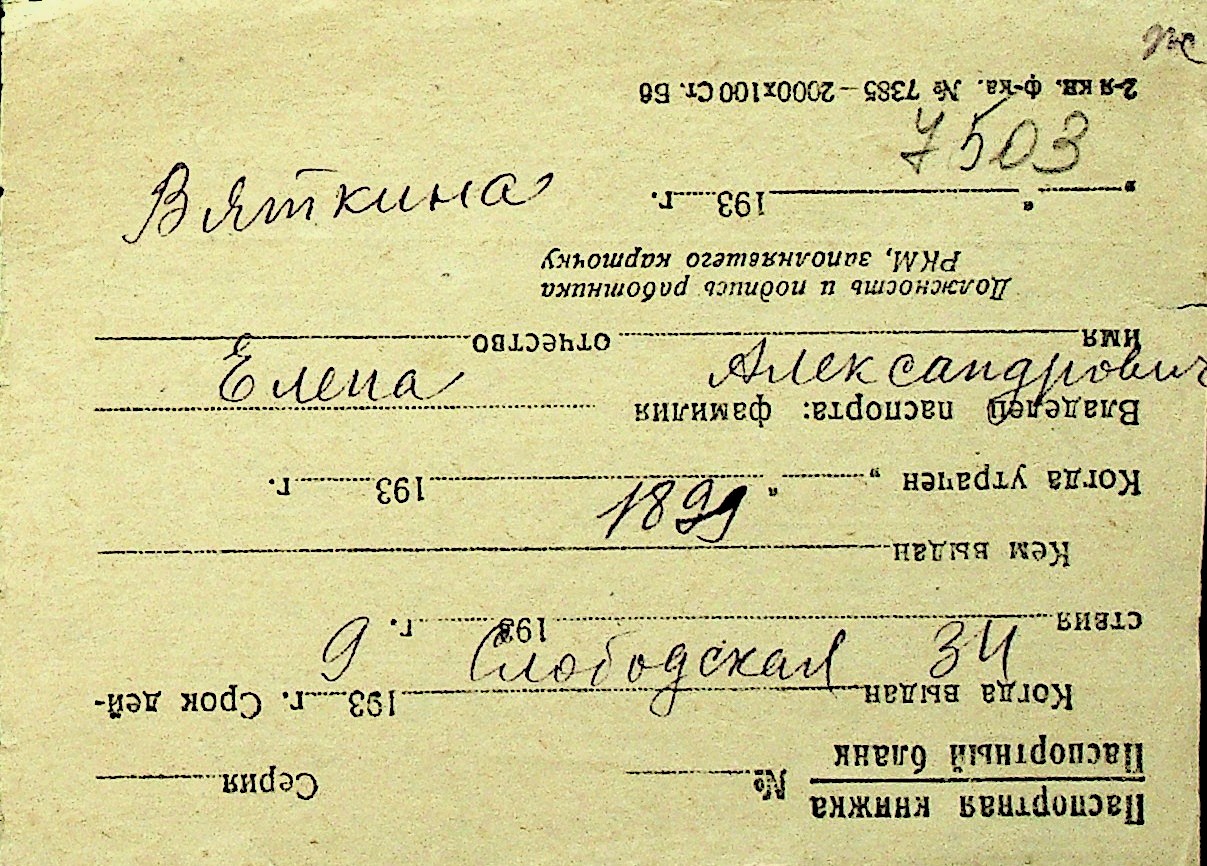 7503
Вяткина
Елена Александрович
1899
9 Слободская 34
Паспортная книжка
№ Серия
Паспортный бланк
Когда выдан 193 г. Срок дей-
ствия 193 г.
Кем выдан
Когда утрачен „ “ 193 г.
Владелец паспорта: фамилия
имя отчество
Должность и подпись работника
РКМ, заполнявшего карточку
„ “ 193 г.
2-я кв. ф-ка. № 7385–2000х100 Ст. Бб